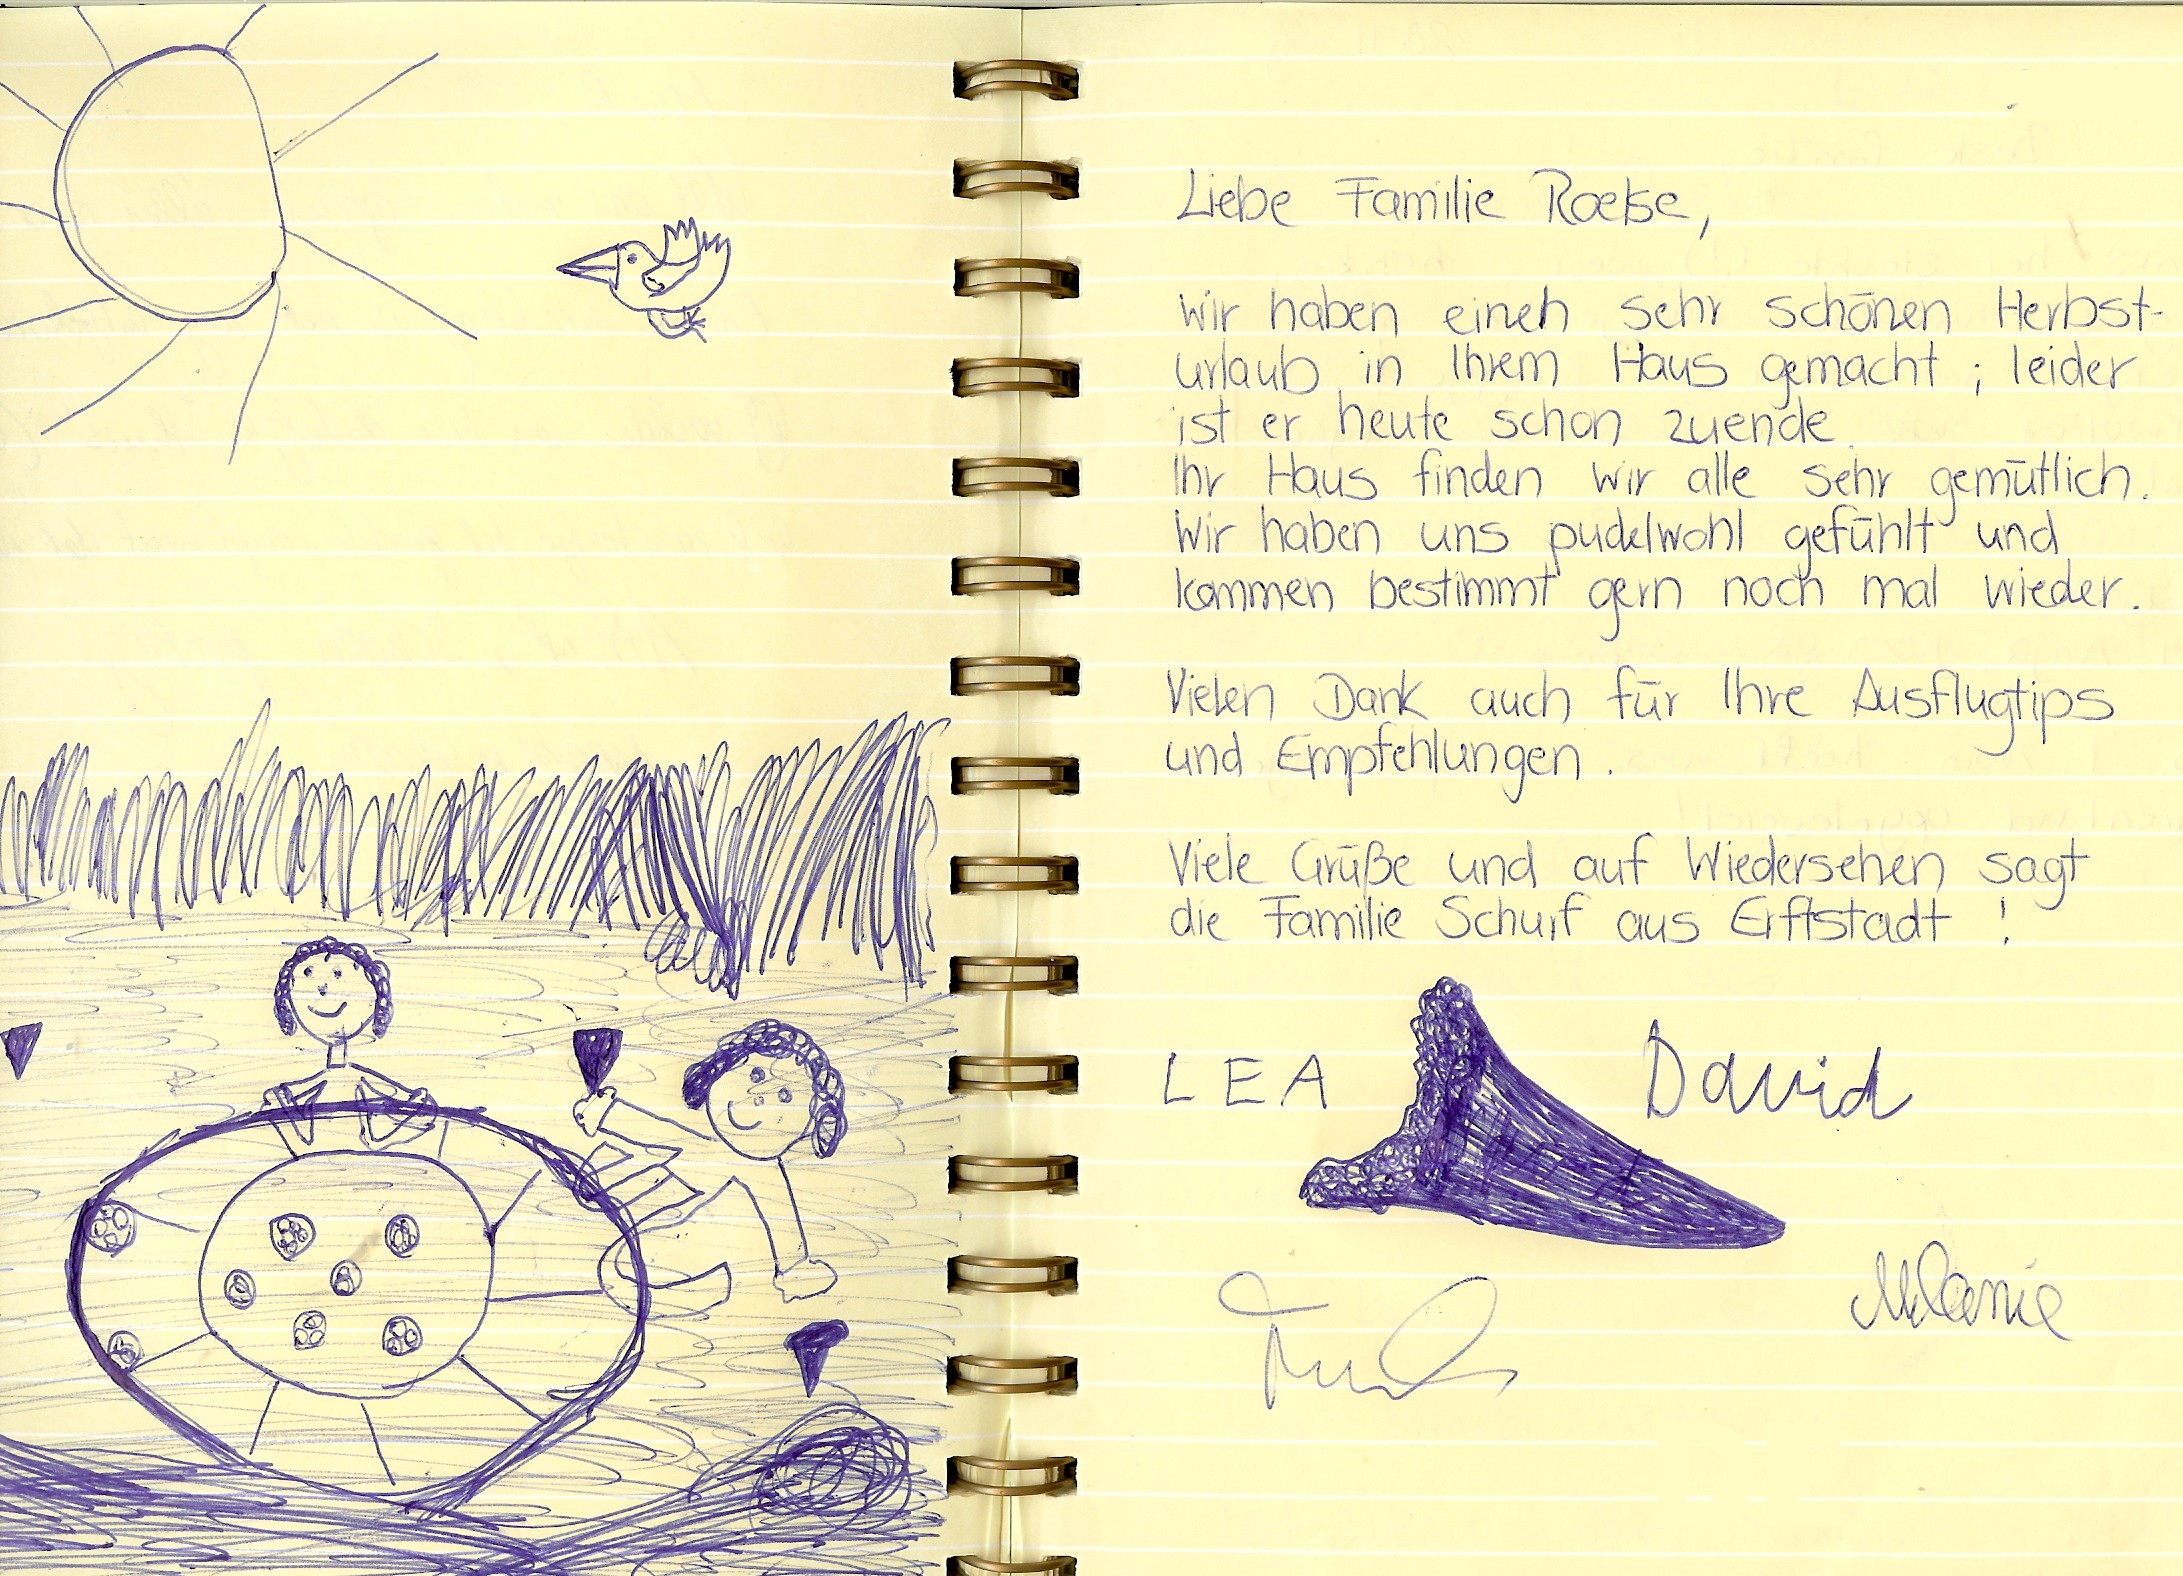 Liebe Familie Roelse,
wir haben einen sehr schönen Herbst-
urlaub in Ihrem Haus gemacht ; leider
ist er heute schon zuende.
Ihr Haus finden wir alle sehr gemütlich.
Wir haben uns pudelwohl gefühlt und
kommen bestimmt gern noch mal wieder.
Vielen Dank auch für Ihre Ausflugtips
und Empfehlungen.
Viele Grüße und auf Wiedersehen sagt
die Familie Schurf aus Erftstadt !
LEA David
Melanie